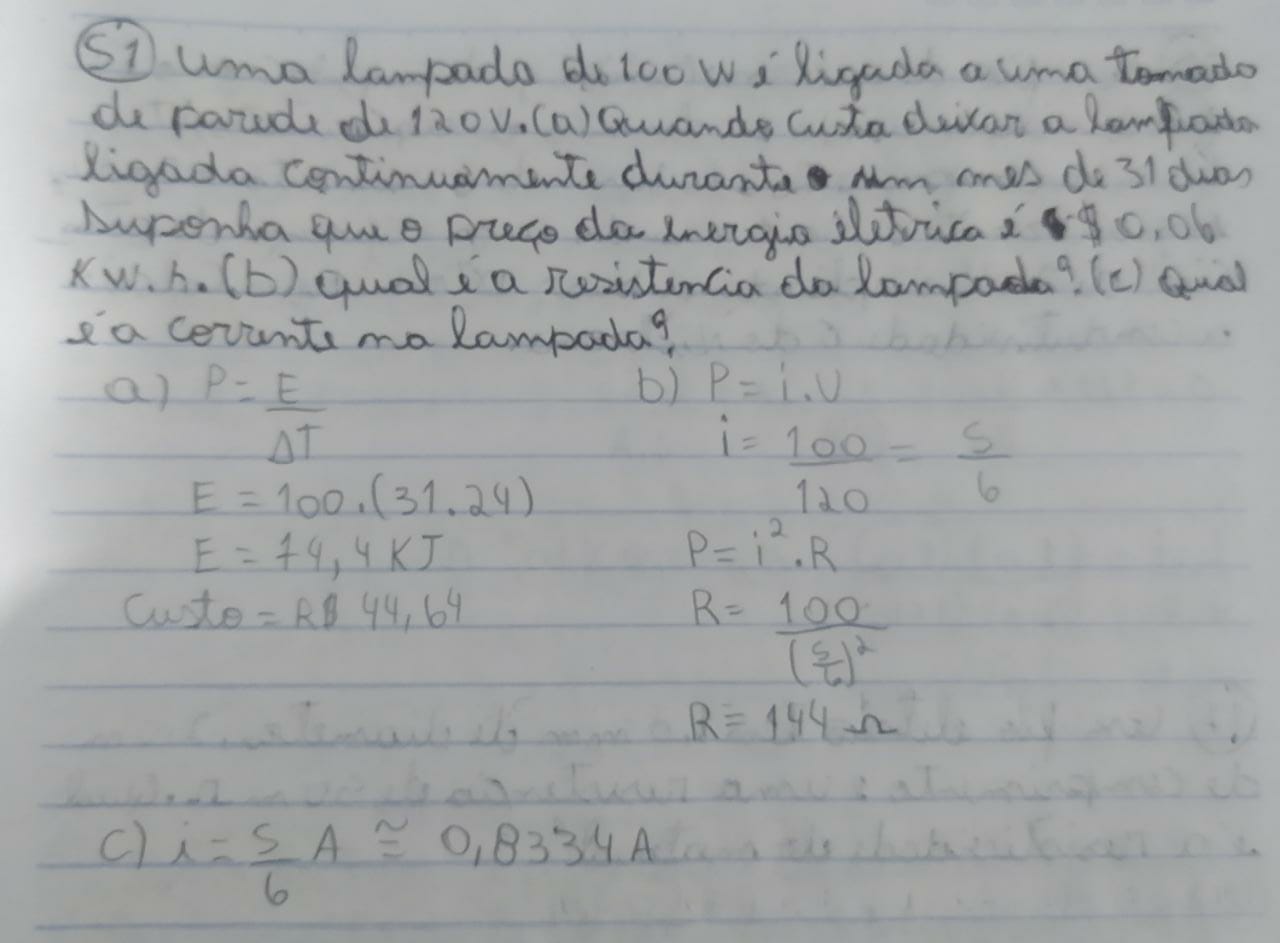 51 Uma lampada de 100 W é ligada a uma tomada
de parede de 120 V. (a) Quando custa deixar a lampada
ligada continuamente durante um mes de 31 dias
Suponha que o preço da energia eletrica é $ 0,06
KW.h. (b) qual é a resistencia da lampada? (c) Qual
é a corrente na lampada?
a) P = E/ΔT
E = 100.(31.24)
E = 74,4 KJ
Custo = R$ 44,64
b) P = i.U
i = 100/120 = 5/6
P = i².R
R = 100/(5/6)²
R = 144 Ω
c) i = 5/6 A ≅ 0,8334 A